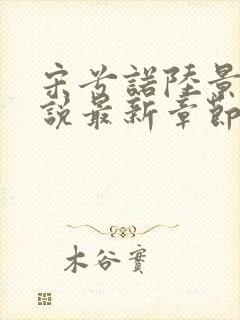 宋兮諾陸景
說最新章節
木谷實